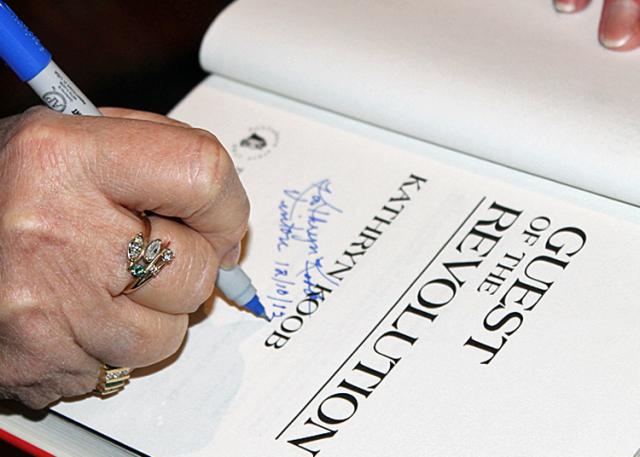 GUEST
OF THE
REVOLUTION
KATHRYN KOOB
Kathryn Koob
12/10/13